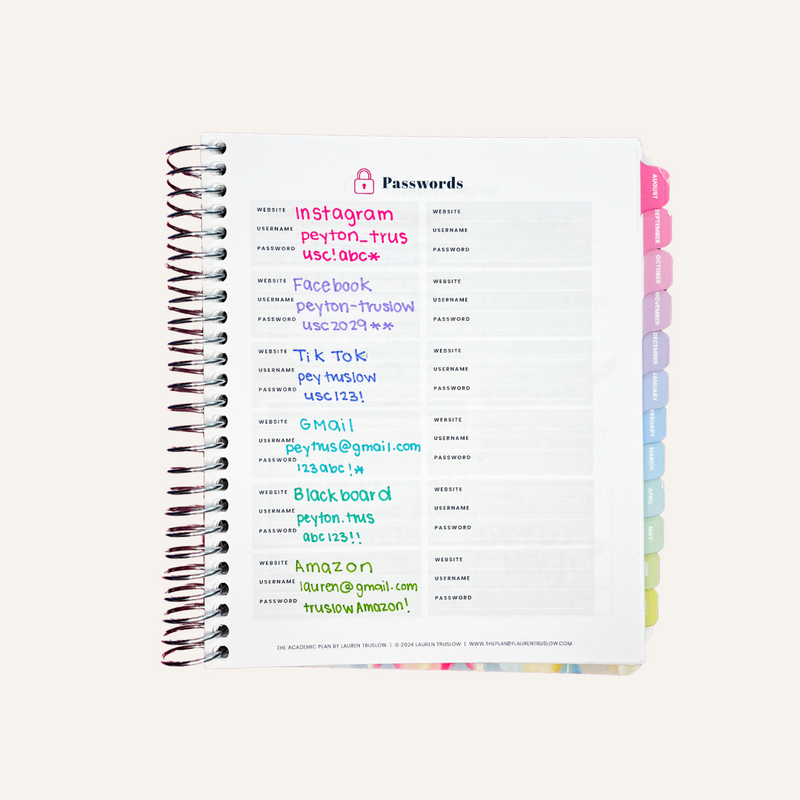 Passwords
WEBSITE Instagram
USERNAME peyton_trus
PASSWORD usc!abc*
WEBSITE Facebook
USERNAME peyton-truslow
PASSWORD usc2029**
WEBSITE Tik Tok
USERNAME peytruslow
PASSWORD usc123!
WEBSITE GMail
USERNAME peytrus@gmail.com
PASSWORD 123abc!*
WEBSITE Blackboard
USERNAME peyton.trus
PASSWORD abc123!!
WEBSITE Amazon
USERNAME lauren@gmail.com
PASSWORD truslowAmazon!
WEBSITE
USERNAME
PASSWORD
WEBSITE
USERNAME
PASSWORD
WEBSITE
USERNAME
PASSWORD
WEBSITE
USERNAME
PASSWORD
WEBSITE
USERNAME
PASSWORD
WEBSITE
USERNAME
PASSWORD
THE ACADEMIC PLAN BY LAUREN TRUSLOW | © 2024 LAUREN TRUSLOW | WWW.THEPLANBYLAURENTRUSLOW.COM
AUGUST
SEPTEMBER
OCTOBER
NOVEMBER
DECEMBER
JANUARY
MARCH
APRIL
MAY